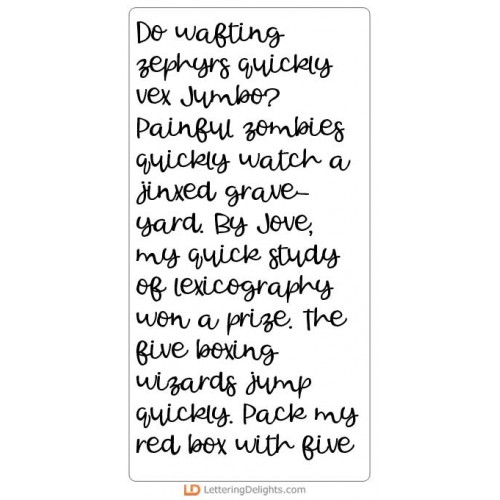 Do wafting
zephyrs quickly
vex Jumbo?
Painful zombies
quickly watch a
jinxed grave-
yard. By Jove,
my quick study
of lexicography
won a prize. The
five boxing
wizards jump
quickly. Pack my
red box with five
LD LetteringDelights.com